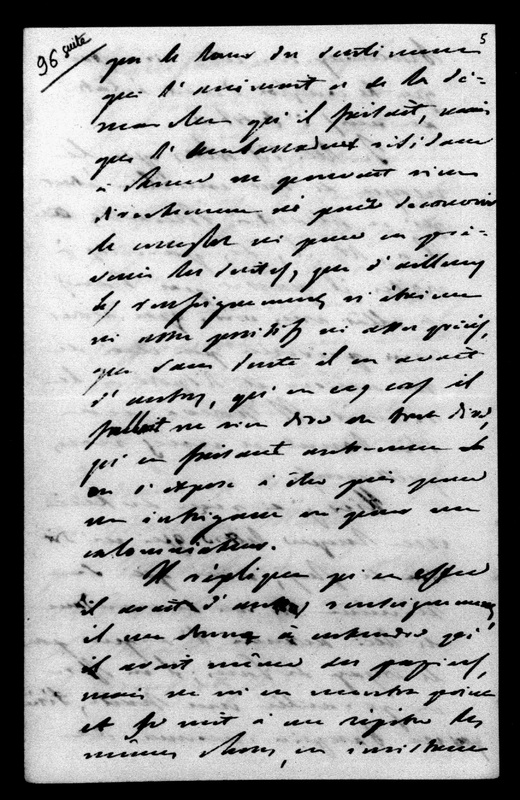 96 suite
5
par le ton du sentiment
qui l'animait et de la dé-
marche qu'il faisait, mais
que l'Ambassadeur résidant
à Rome ne pouvait rien
directement ni pour découvrir
le complot ni pour en pré-
venir les suites, que d'ailleurs
les renseignements n'étaient
ni assez positifs ni assez précis,
que sans doute il en avait
d'autres, qu'en ce cas il
fallait ne rien dire ou tout dire,
qu'en faisant autrement
on s'expose à être pris pour
un intrigant ou pour un
calomniateur.
Il répliqua qu'en effet
il avait d'autres renseignements,
il me donna à entendre qu'
il avait même des papiers,
mais ne m'en montra point
et se mit à me répéter les
mêmes choses, en insistant